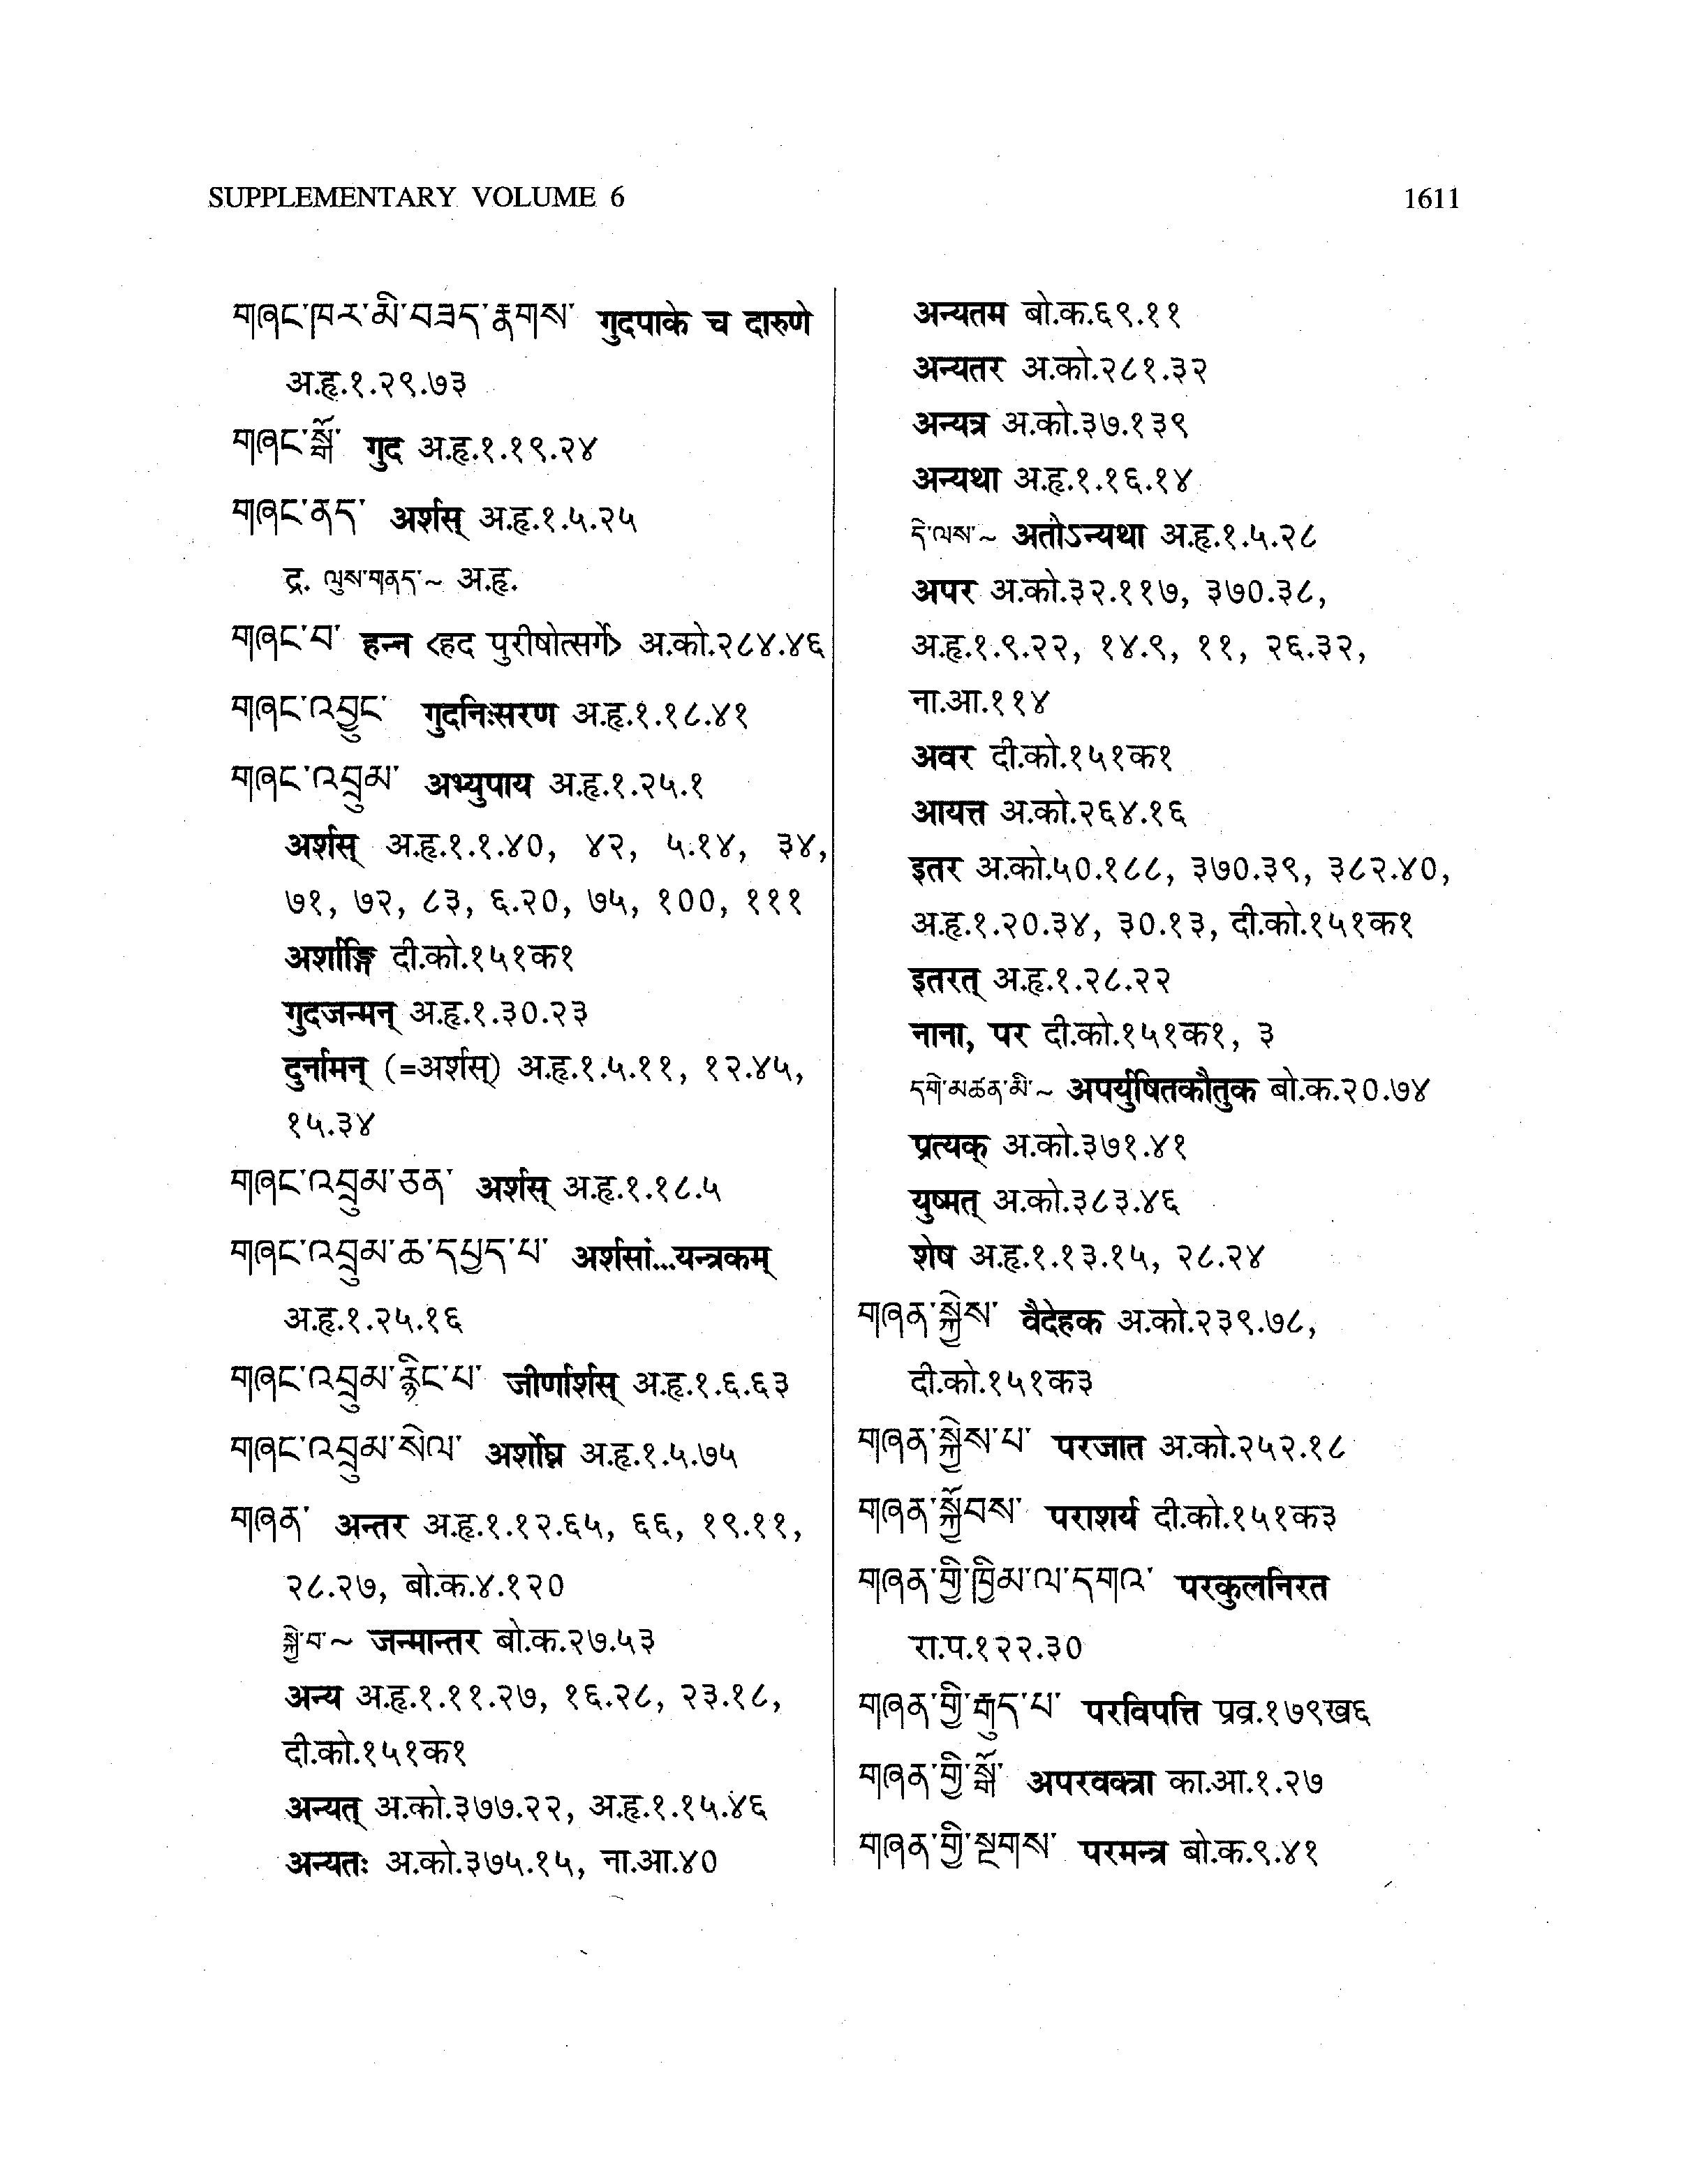 SUPPLEMENTARY VOLUME 6
1611
གཞང་ཁར་མི་བཟད་རྣགས་ गुदपाके च दारुणे
अ.हृ.१.२९.७३
གཞང་སྒོ་ गुद अ.हृ.१.१९.२४
གཞང་ནད་ अर्शस् अ.हृ.१.५.२५
द्र. ལུས་གནད་~ अ.हृ.
གཞང་བ་ हन्न <हद पुरीषोत्सर्गे> अ.को.२८४.४६
གཞང་འབྱུང་ गुदनिःसरण अ.हृ.१.१८.४१
གཞང་འབྲུམ་ अभ्युपाय अ.हृ.१.२५.१
अर्शस् अ.हृ.१.१.४०, ४२, ५.१४, ३४,
७१, ७२, ८३, ६.२०, ७५, १००, १११
अर्शाङ्गि दी.को.१५१क१
गुदजन्मन् अ.हृ.१.३०.२३
दुर्नामन् (=अर्शस्) अ.हृ.१.५.११, १२.४५,
१५.३४
གཞང་འབྲུམ་ཅན་ अर्शस् अ.हृ.१.१८.५
གཞང་འབྲུམ་ཆ་དཔྱད་པ་ अर्शसां...यन्त्रकम्
अ.हृ.१.२५.१६
གཞང་འབྲུམ་རྙིང་པ་ जीर्णार्शस् अ.हृ.१.६.६३
གཞང་འབྲུམ་སེལ་ अर्शोघ्न अ.हृ.१.५.७५
གཞན་ अन्तर अ.हृ.१.१२.६५, ६६, १९.११,
२८.२७, बो.क.४.१२०
སྐྱེ་བ་~ जन्मान्तर बो.क.२७.५३
अन्य अ.हृ.१.११.२७, १६.२८, २३.१८,
दी.को.१५१क१
अन्यत् अ.को.३७७.२२, अ.हृ.१.१५.४६
अन्यतः अ.को.३७५.१५, ना.आ.४०
अन्यतम बो.क.६९.११
अन्यतर अ.को.२८१.३२
अन्यत्र अ.को.३७.१३९
अन्यथा अ.हृ.१.१६.१४
དེ་ལས་~ अतोऽन्यथा अ.हृ.१.५.२८
अपर अ.को.३२.११७, ३७०.३८,
अ.हृ.१.९.२२, १४.९, ११, २६.३२,
ना.आ.११४
अवर दी.को.१५१क१
आयत्त अ.को.२६४.१६
इतर अ.को.५०.१८८, ३७०.३९, ३८२.४०,
अ.हृ.१.२०.३४, ३०.१३, दी.को.१५१क१
इतरत् अ.हृ.१.२८.२२
नाना, पर दी.को.१५१क१, ३
དགེ་མཚན་མི་~ अपर्युषितकौतुक बो.क.२०.७४
प्रत्यक् अ.को.३७१.४१
युष्मत् अ.को.३८३.४६
शेष अ.हृ.१.१३.१५, २८.२४
གཞན་སྐྱེས་ वैदेहक अ.को.२३९.७८,
दी.को.१५१क३
གཞན་སྐྱེས་པ་ परजात अ.को.२५२.१८
གཞན་སྐྱོབས་ पराशर्य दी.को.१५१क३
གཞན་གྱི་ཁྱིམ་ལ་དགའ་ परकुलनिरत
रा.प.१२२.३०
གཞན་གྱི་རྒུད་པ་ परविपत्ति प्रव्र.१७९ख६
གཞན་གྱི་སྒོ་ अपरवक्त्रा का.आ.१.२७
གཞན་གྱི་སྔགས་ परमन्त्र बो.क.९.४१